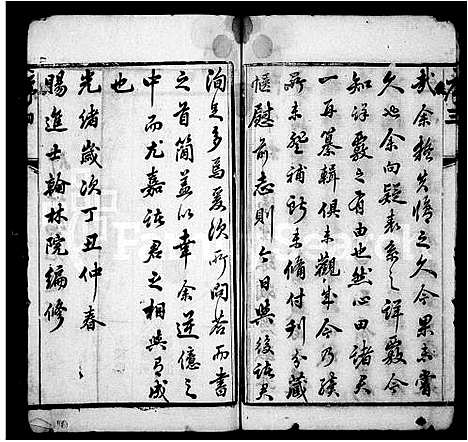 我余能失憾之久今果未嘗
久也余向疑表系之詳覈今
知詳覈之有由也然心田諸君
一再纂輯俱未觀成今乃續
所未登補所未備付剞分藏
慰前志則今日與後諸君
洵足多焉爰次所問答而書
之首簡蓋以幸余逆億之
中而尤嘉諸君之相與有成
也
光緒歲次丁丑仲春
賜進士翰林院編修